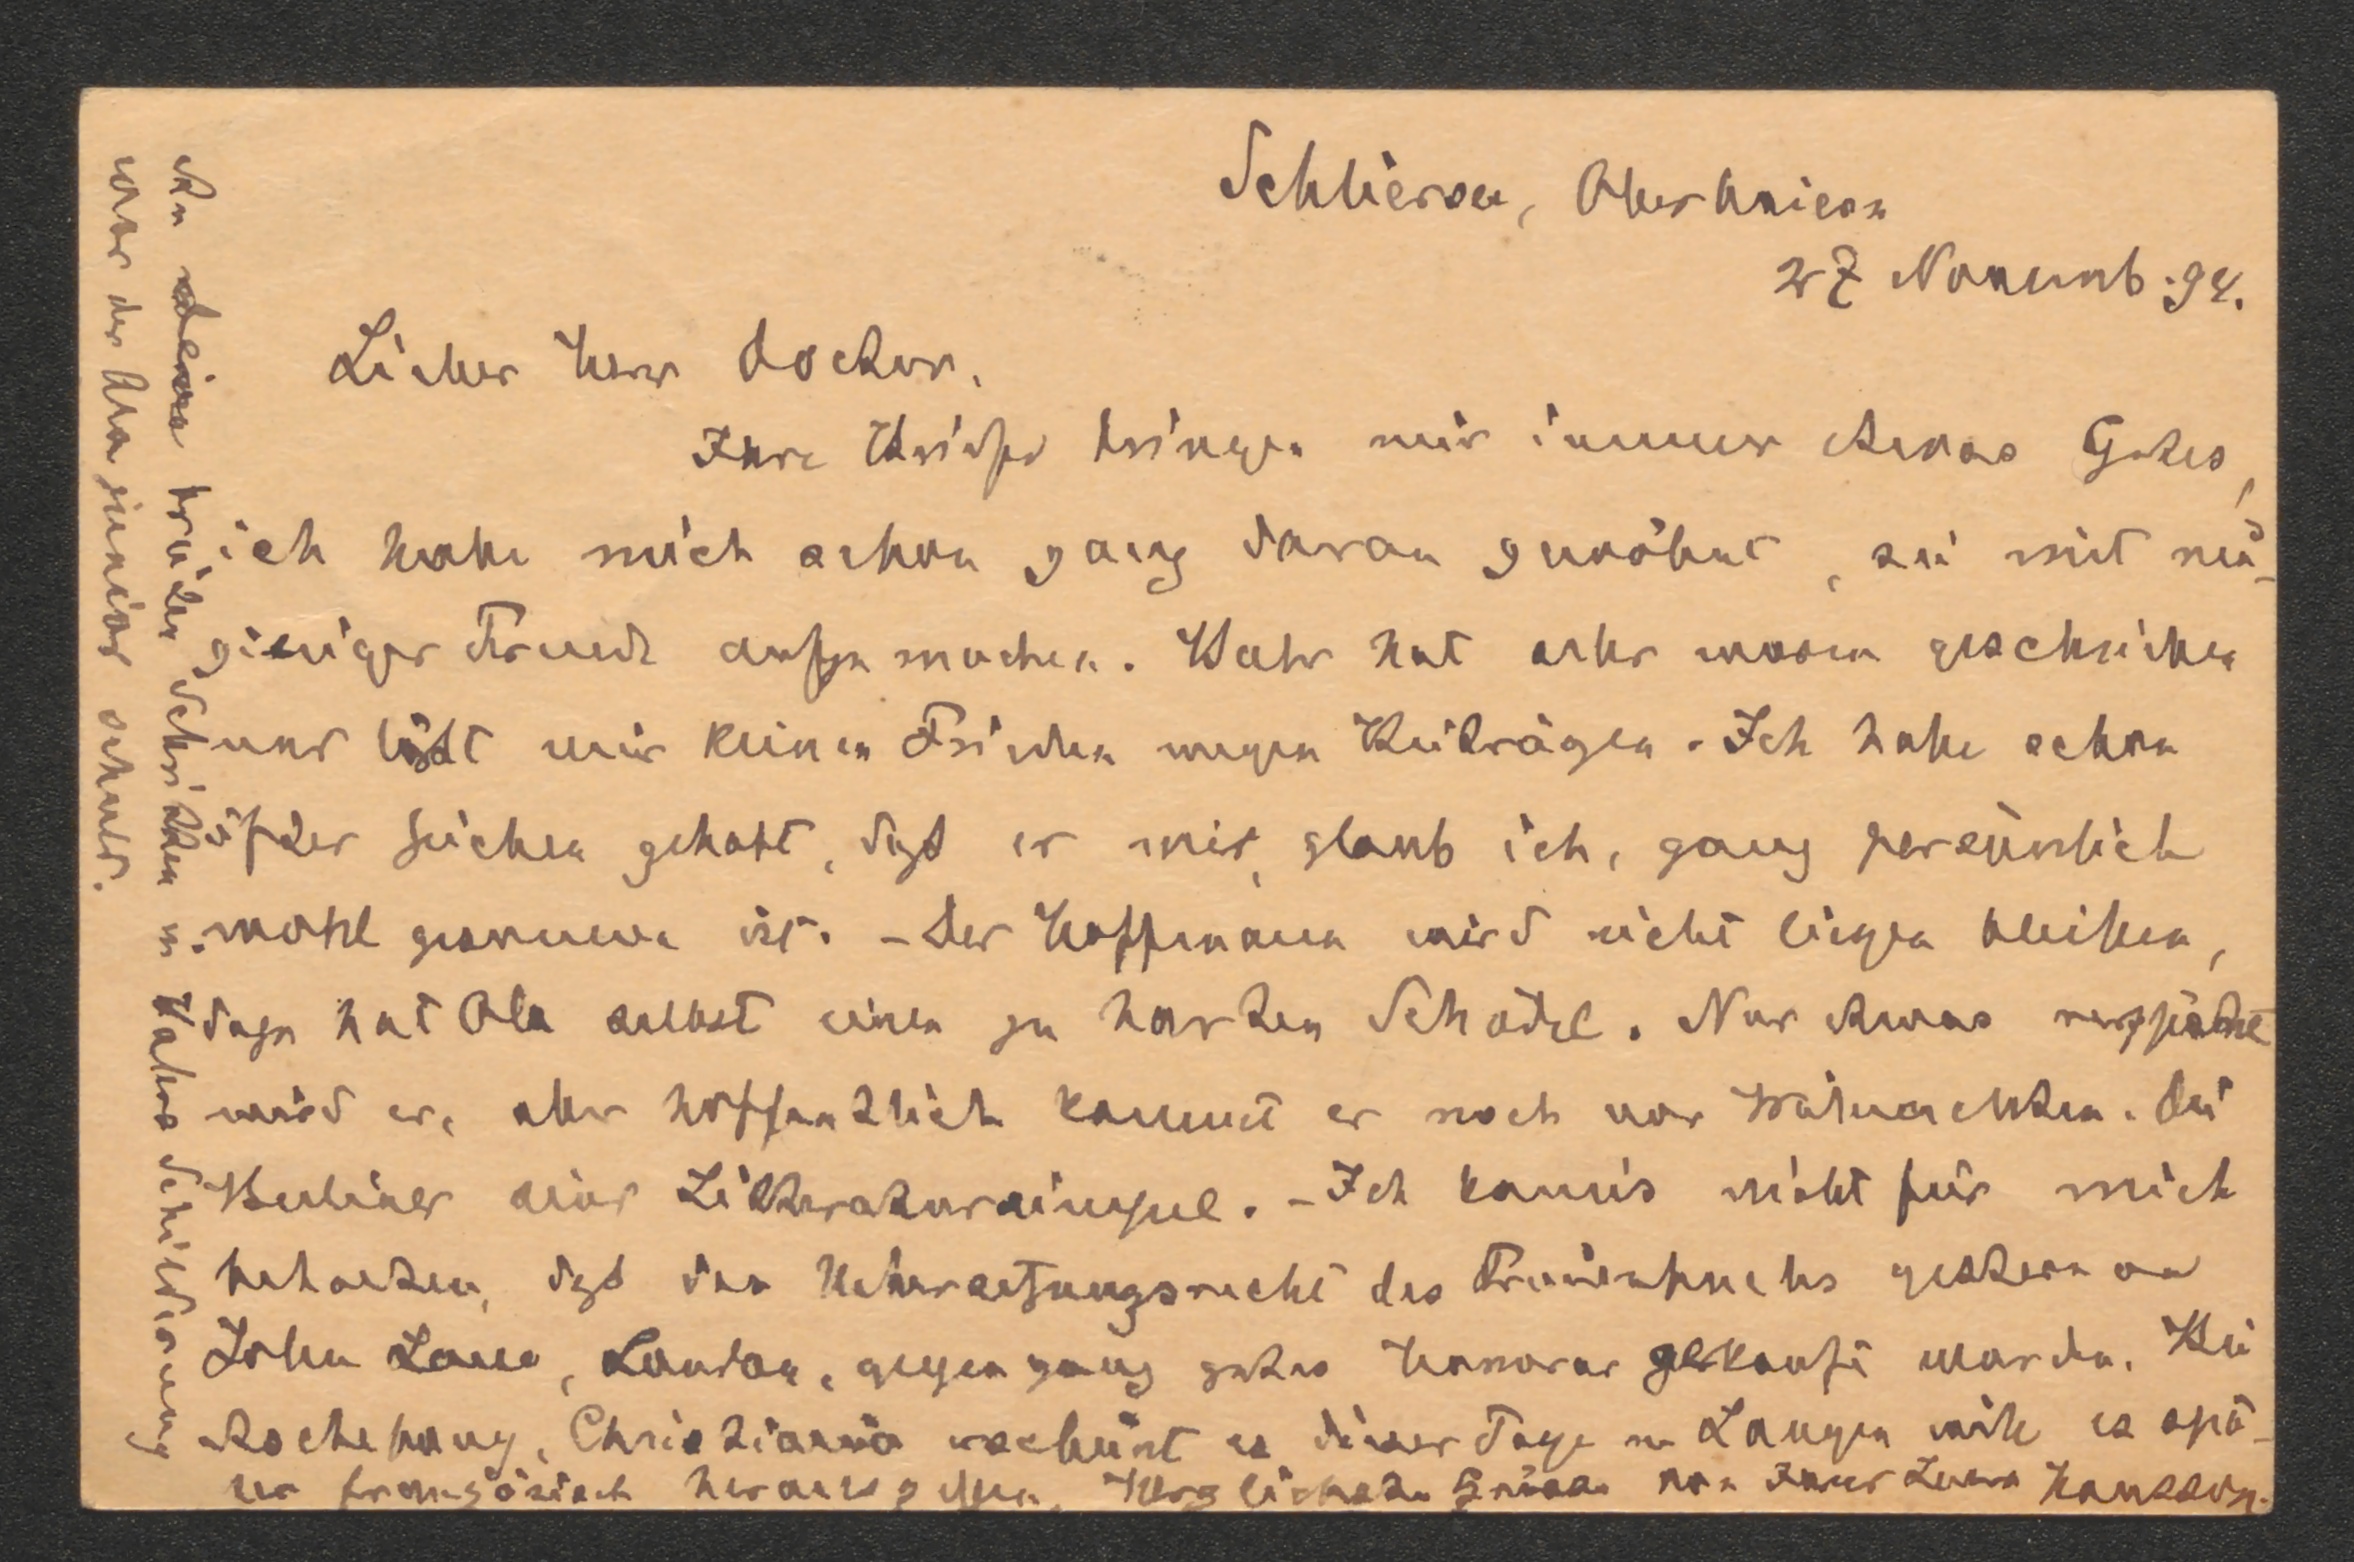 Schliersee, Oberbaiern
27 Novemb. 94.
Lieber Herr Doctor,
Ihre Briefe bringen mir immer etwas Gutes,
ich habe mich schon ganz daran gewöhnt, sie mit neu-
gieriger Freude aufzumachen. Bahr hat sehr warm geschrieben
und läßt mir keinen Frieden wegen Beiträgen. Ich habe schon
öfter Zeichen gehabt, daß er mir, glaub ich, ganz persönlich
wohl gesonnen ist. – Der Hoffmann wird nicht liegen bleiben,
dazu hat Ola selbst einen zu harten Schädel. Nur etwas verspätet
wird er, aber hoffentlich kommt er noch vor Weihnachten. Die
Berliner sind Litteratursimpel. – Ich kann's nicht für mich
behalten, daß das Uebersetzungsrecht des Frauenbuchs gestern an
John Lane, London, gegen ganz gutes Honorar gekauft wurde. Bei
Aschehoug, Christiania erscheint es dieser Tage u. Langen will es spä-
ter französisch herausgeben. Herzlichste Grüsse von Ihrer Laura Hansson.
An beiden Schritten u. Bahrs Schilderung
war der Ola junior schuld.